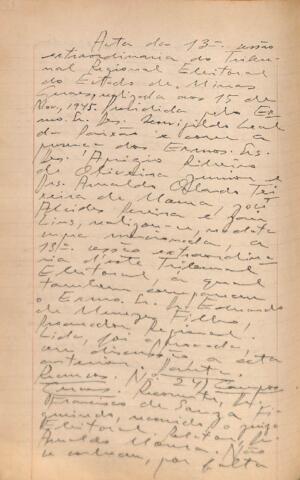 Acta da 13ª sessão
extraordinaria do Tribu-
nal Regional Eleitoral
do Estado de Minas
Geraes, realizada aos 15 de
Nov. 1945. Presidida pelo Ex-
mo. Sr. Des. Leal
da Paixão e com a
presença dos Exmos. Srs.
Des. Amizio Ribeiro
de Oliveira
Drs. Arnaldo Orlando Tei-
xeira de Moura, José
Alcides Pereira e
Lins, realizou-se, na data
supra mencionada, a
13ª sessão extraordina-
ria deste Tribunal
Eleitoral, á qual
tambem compareceu
o Exmo. Sr. Dr. Eduardo
de Menezes Filho,
Procurador Regional.
Lida, foi aprovada,
sem discussão, a acta
anterior.
Recurso. Nº 24, Campos
Geraes. Recorrente,
Francisco de Souza Fi-
gueiredo, recorrido o juizo
Eleitoral. Relator Dr.
Arnaldo Moura. Não
se conheceu, por falta